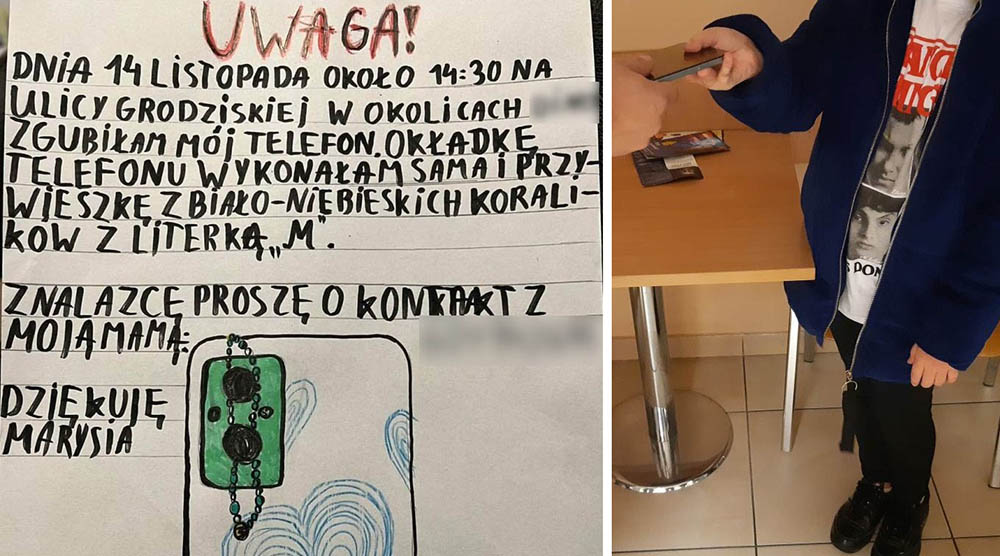 UWAGA!
DNIA 14 LISTOPADA OKOŁO 14:30 NA
ULICY GRODZISKIEJ W OKOLICACH
ZGUBIŁAM MÓJ TELEFON. OKŁADKĘ
TELEFONU WYKONAŁAM SAMA I PRZY-
WIESZKĘ Z BIAŁO-NIĘBIESKICH KORALI-
KÓW Z LITERKĄ „M".
ZNALAZCĘ PROSZĘ O KONTAKT Z
MOJĄ MAMĄ:
DZIĘKUJĘ
MARYSIA